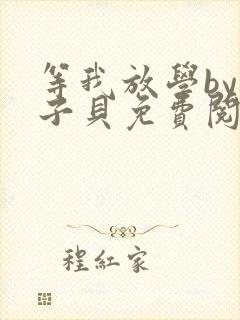 等我放學by
子貝免費閱
程紅家